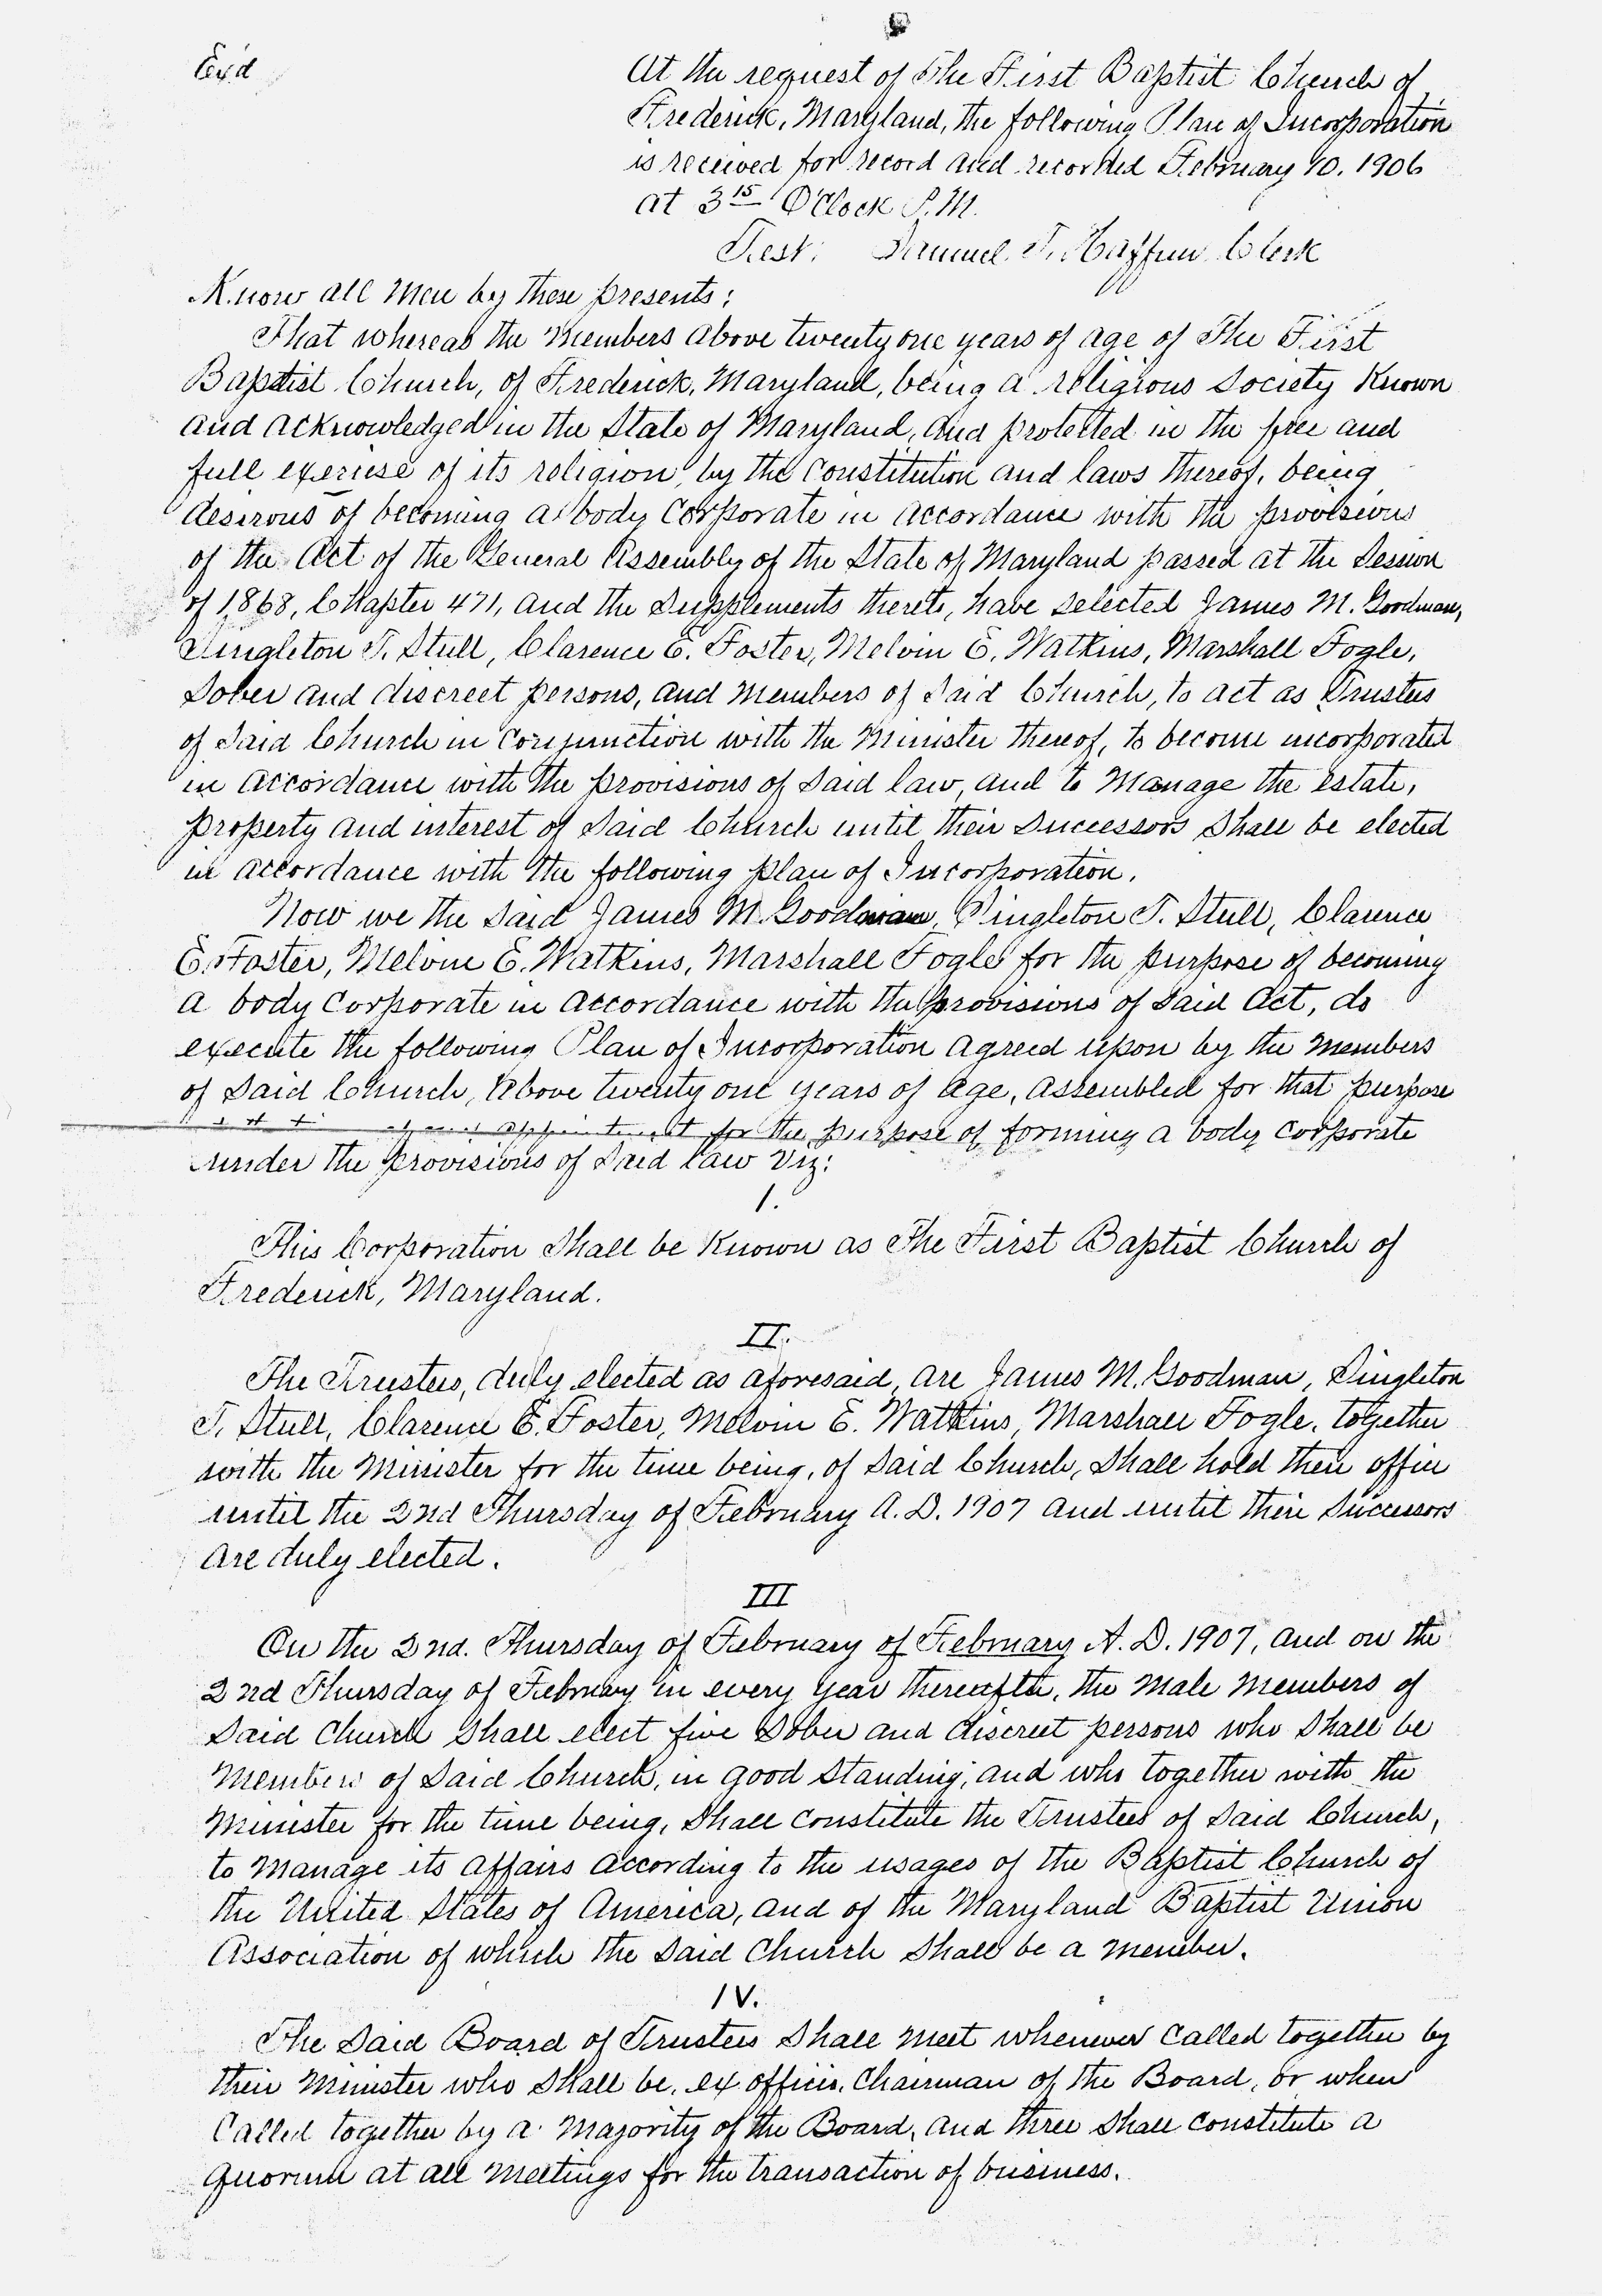 Ex'd
At the request of The First Baptist Church of
Frederick, Maryland, the following Plan of Incorporation
is received for record and recorded February 10. 1906
at 3 15 O'Clock P.M.
Test: Samuel T. Haffner Clerk
Know all Men by these presents:
That whereas the Members above twenty one years of age of The First
Baptist Church, of Frederick, Maryland, being a religious Society Known
and acknowledged in the State of Maryland, and protected in the free and
full exercise of its religion, by the Constitution and laws thereof, being
desirous of becoming a body Corporate in accordance with the provisions
of the Act of the General Assembly of the State of Maryland passed at the Session
of 1868, Chapter 471, and the Supplements thereto, have selected James M. Goodman,
Singleton T. Stull, Clarence E. Foster, Melvin E. Watkins, Marshall Fogle,
Sober and discreet persons, and Members of Said Church, to act as Trustees
of Said Church in Conjunction with the Minister thereof, to become incorporated
in accordance with the provisions of Said law, and to Manage the estate,
property and interest of Said Church until their Successors Shall be elected
in accordance with the following plan of Incorporation.
Now we the Said James M. Goodman, Singleton T. Stull, Clarence
E. Foster, Melvin E. Watkins, Marshall Fogle for the purpose of becoming
a body Corporate in accordance with the provisions of Said Act, do
execute the following Plan of Incorporation agreed upon by the Members
of Said Church, above twenty one years of age, assembled for that purpose
appointment for the purpose of forming a body Corporate
under the provisions of Said law Viz:
I.
This Corporation Shall be Known as The First Baptist Church of
Frederick, Maryland.
II.
The Trustees, duly elected as aforesaid, are James M. Goodman, Singleton
T. Stull, Clarence E. Foster, Melvin E. Watkins, Marshall Fogle, together
with the Minister for the time being, of Said Church, Shall hold their office
until the 2nd Thursday of February A.D. 1907 and until their Successors
are duly elected.
III
On the 2nd. Thursday of February of February A.D. 1907, and on the
2nd Thursday of February in every year thereafter, the Male Members of
Said Church Shall elect five Sober and discreet persons who Shall be
Members of Said Church, in good Standing, and who together with the
Minister for the time being, Shall constitute the Trustees of Said Church,
to Manage its affairs according to the usages of the Baptist Church of
the United States of America, and of the Maryland Baptist Union
Association of which the Said Church Shall be a member.
IV.
The Said Board of Trustees Shall Meet whenever Called together by
their Minister who Shall be, ex officio, Chairman of the Board, or when
Called together by a Majority of the Board, and three Shall constitute a
quorum at all Meetings for the transaction of business.